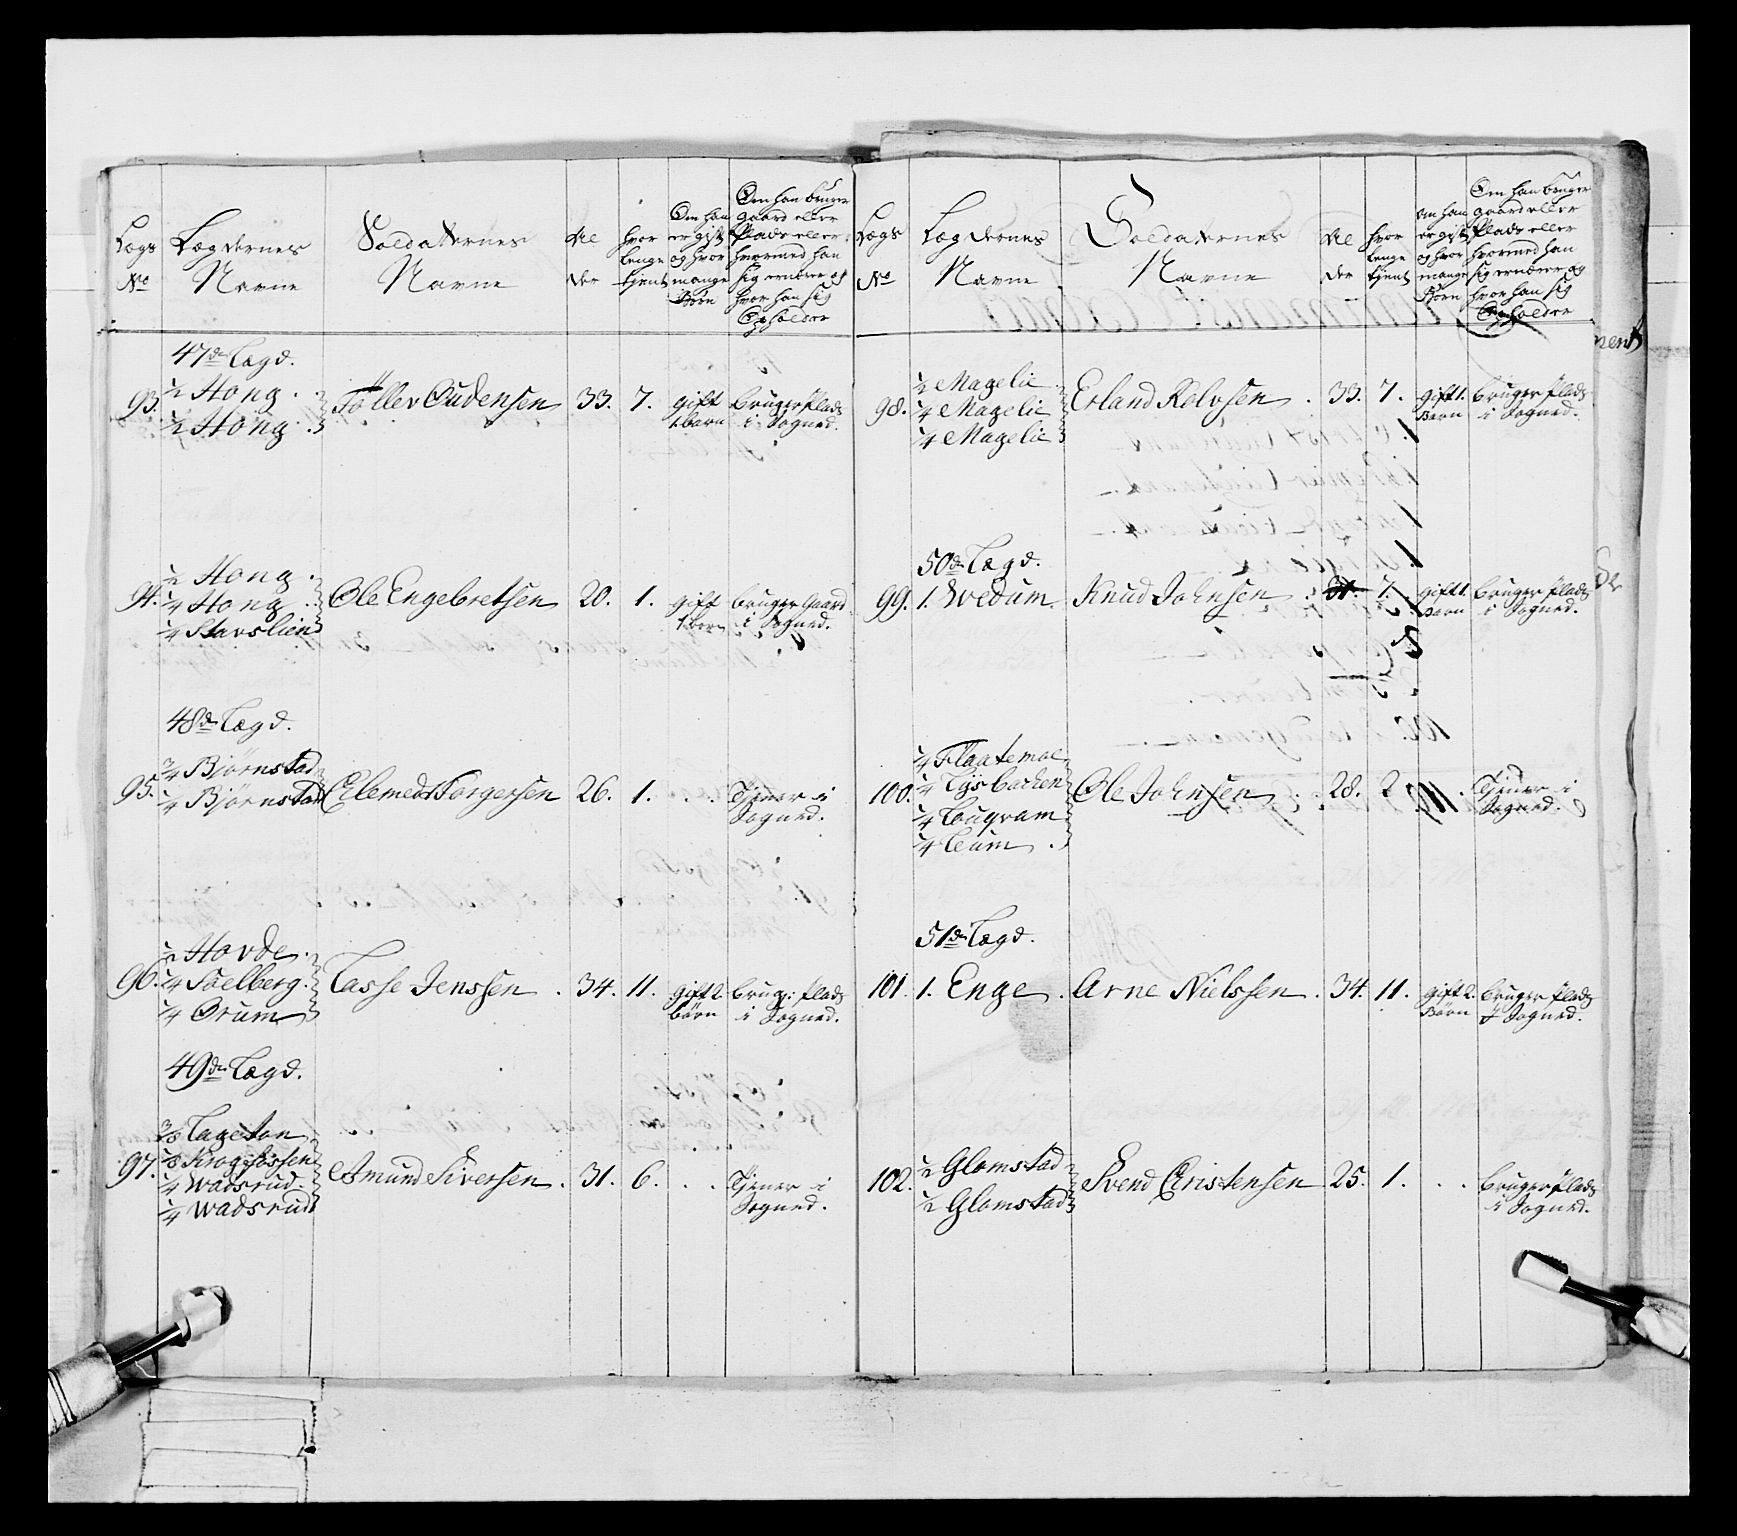 Lægs No
Lægdernes Navne
Soldaternes Navne
Al der
hvor lenge tient
Om han er gift og hvor mange Børn
Om han bruger gaard eller Plads eller hvormed han sig ernærer og hvor han sig Opholder
47de Lægd.
93. 1/2 Hong. 1/2 Hong. Tøllev Oudensen 33. 7. gift 1 barn bruger Plads i Sogned.
94. 1/2 Hong. 1/4 Hong 1/4 Stavslien Ole Engebretsen 20. 1. gift 1 barn bruger Gaard i Sogned.
48de Lægd.
95. 3/4 Bjørnstad 1/4 Bjørnstad Torgersen 26. 1. . . Tjener i Sogned.
96. 1/2 Hovde. 1/4 Soelberg. 1/4 Orum Lasse Jenssen . 34. 11. gift 2 børn brug: Plads i Sogned.
49de Lægd.
97. 3/8 1/8 1/4 Wadsrud. 1/4 Wadsrud Amund Siversen . 31. 6. . . Tjener i Sogned.
Lægs No
Lægdernes Navne
Soldaternes Navne
Al der
hvor lenge tient
Om han er gift og hvor mange Børn
Om han bruger gaard eller Plads eller hvormed han sig ernærer og hvor han sig Opholder
98. 1/2 Magelie 1/4 Magelie 1/4 Magelie Erland Rolvsen . 33. 7. gift 1. Barn bruger Plads i Sogned.
50de Lægd.
99. 1. Wedum. Knud Johnsen . 7. gift 1. Barn bruger Plads i Sogned.
100. 1/4 Flaatemoe 1/4 1/4 1/4 Ole Johnsen . 28. 2 . Tjener i Sogned.
51de Lægd.
101. 1. Enge . Arne Nielssen . 34. 11. gift 2. Børn bruger Plads i Sogned.
102. 1/2 Glomstad 1/2 Glomstad Svend Cristensen 25. 1. . . bruger Plads i Sogned.